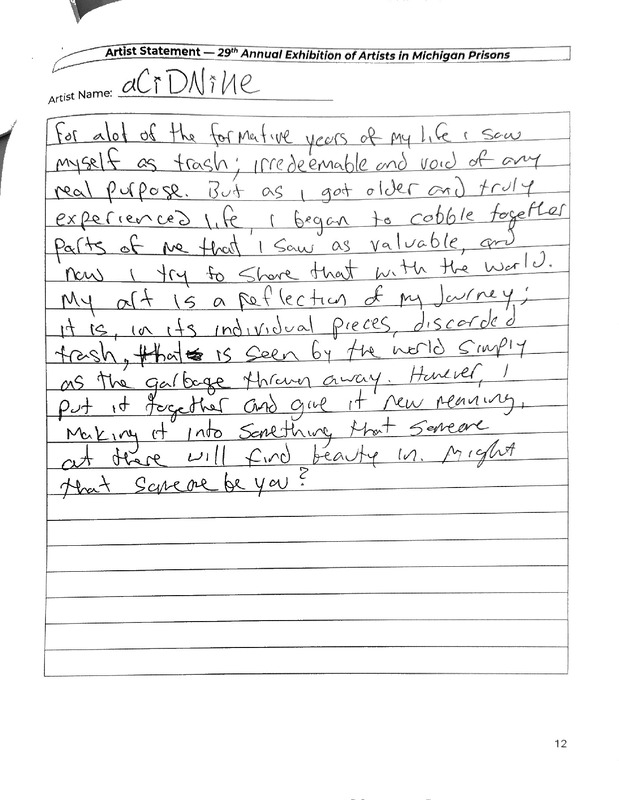 Artist Statement — 29th Annual Exhibition of Artists in Michigan Prisons
Artist Name: aCiDNiNe
For alot of the formative years of my life I saw
myself as trash; irredeemable and void of any
real purpose. But as I got older and truly
experienced life, I began to cobble together
parts of me that I saw as valuable, and
now I try to share that with the world.
My art is a reflection of my journey;
it is, in its individual pieces, discarded
trash, that is seen by the world simply
as the garbage thrown away. However, I
put it together and give it new meaning,
making it into something that someone
out there will find beauty in. Might
that someone be you?
12